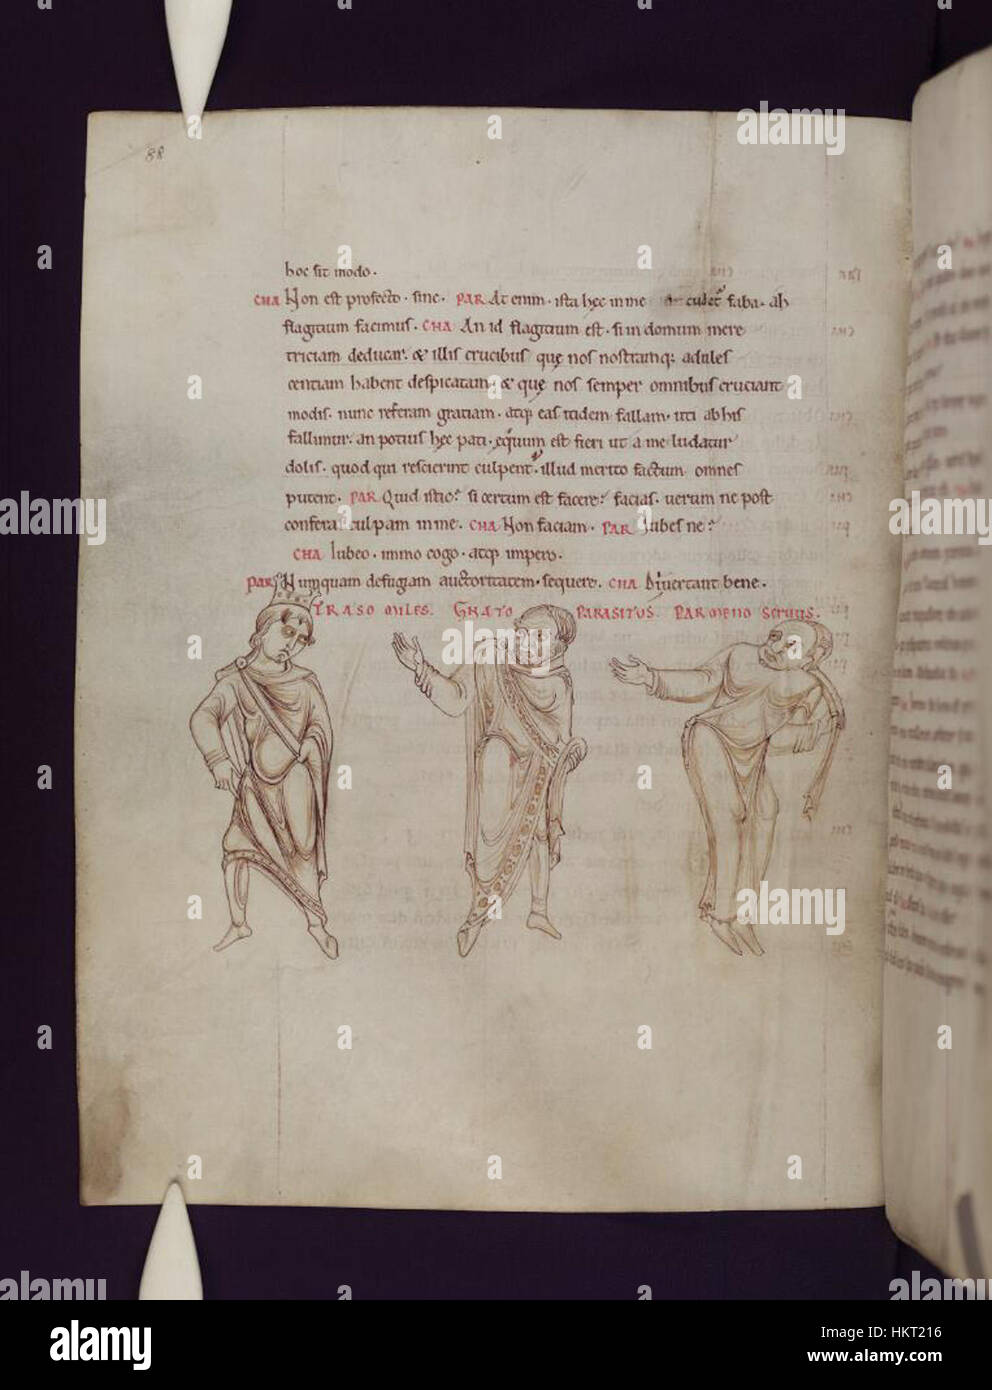 88
hoc sit modo.
CHA Non est profecto. sine. PAR At enim. ista hec in me cudet faba. ah
flagitium facimus. CHA An id flagitium est. si in domum mere
triciam deducar. & illis crucibus que nos nostramq; adules
centiam habent despicatam. & que nos semper omnibus cruciant
modis. nunc referam gratiam. atq; eas itidem fallam. uti ab his
fallimur. an potius hec pati. equum est fieri ut a me ludatur
dolis. quod qui rescierint culpent. illud merito factum omnes
putent. PAR Quid istic? si certum est facere? facias. uerum ne post
conferas culpam in me. CHA Non faciam. PAR Iubes ne?
CHA Iubeo. immo cogo. atq; impero.
PAR Numquam defugiam auctoritatem. sequere. CHA Diuertant bene.
TRASO MILES. GNATO PARASITUS. PARMENO SERUUS.
alamy
Image ID: HKT216
www.alamy.com